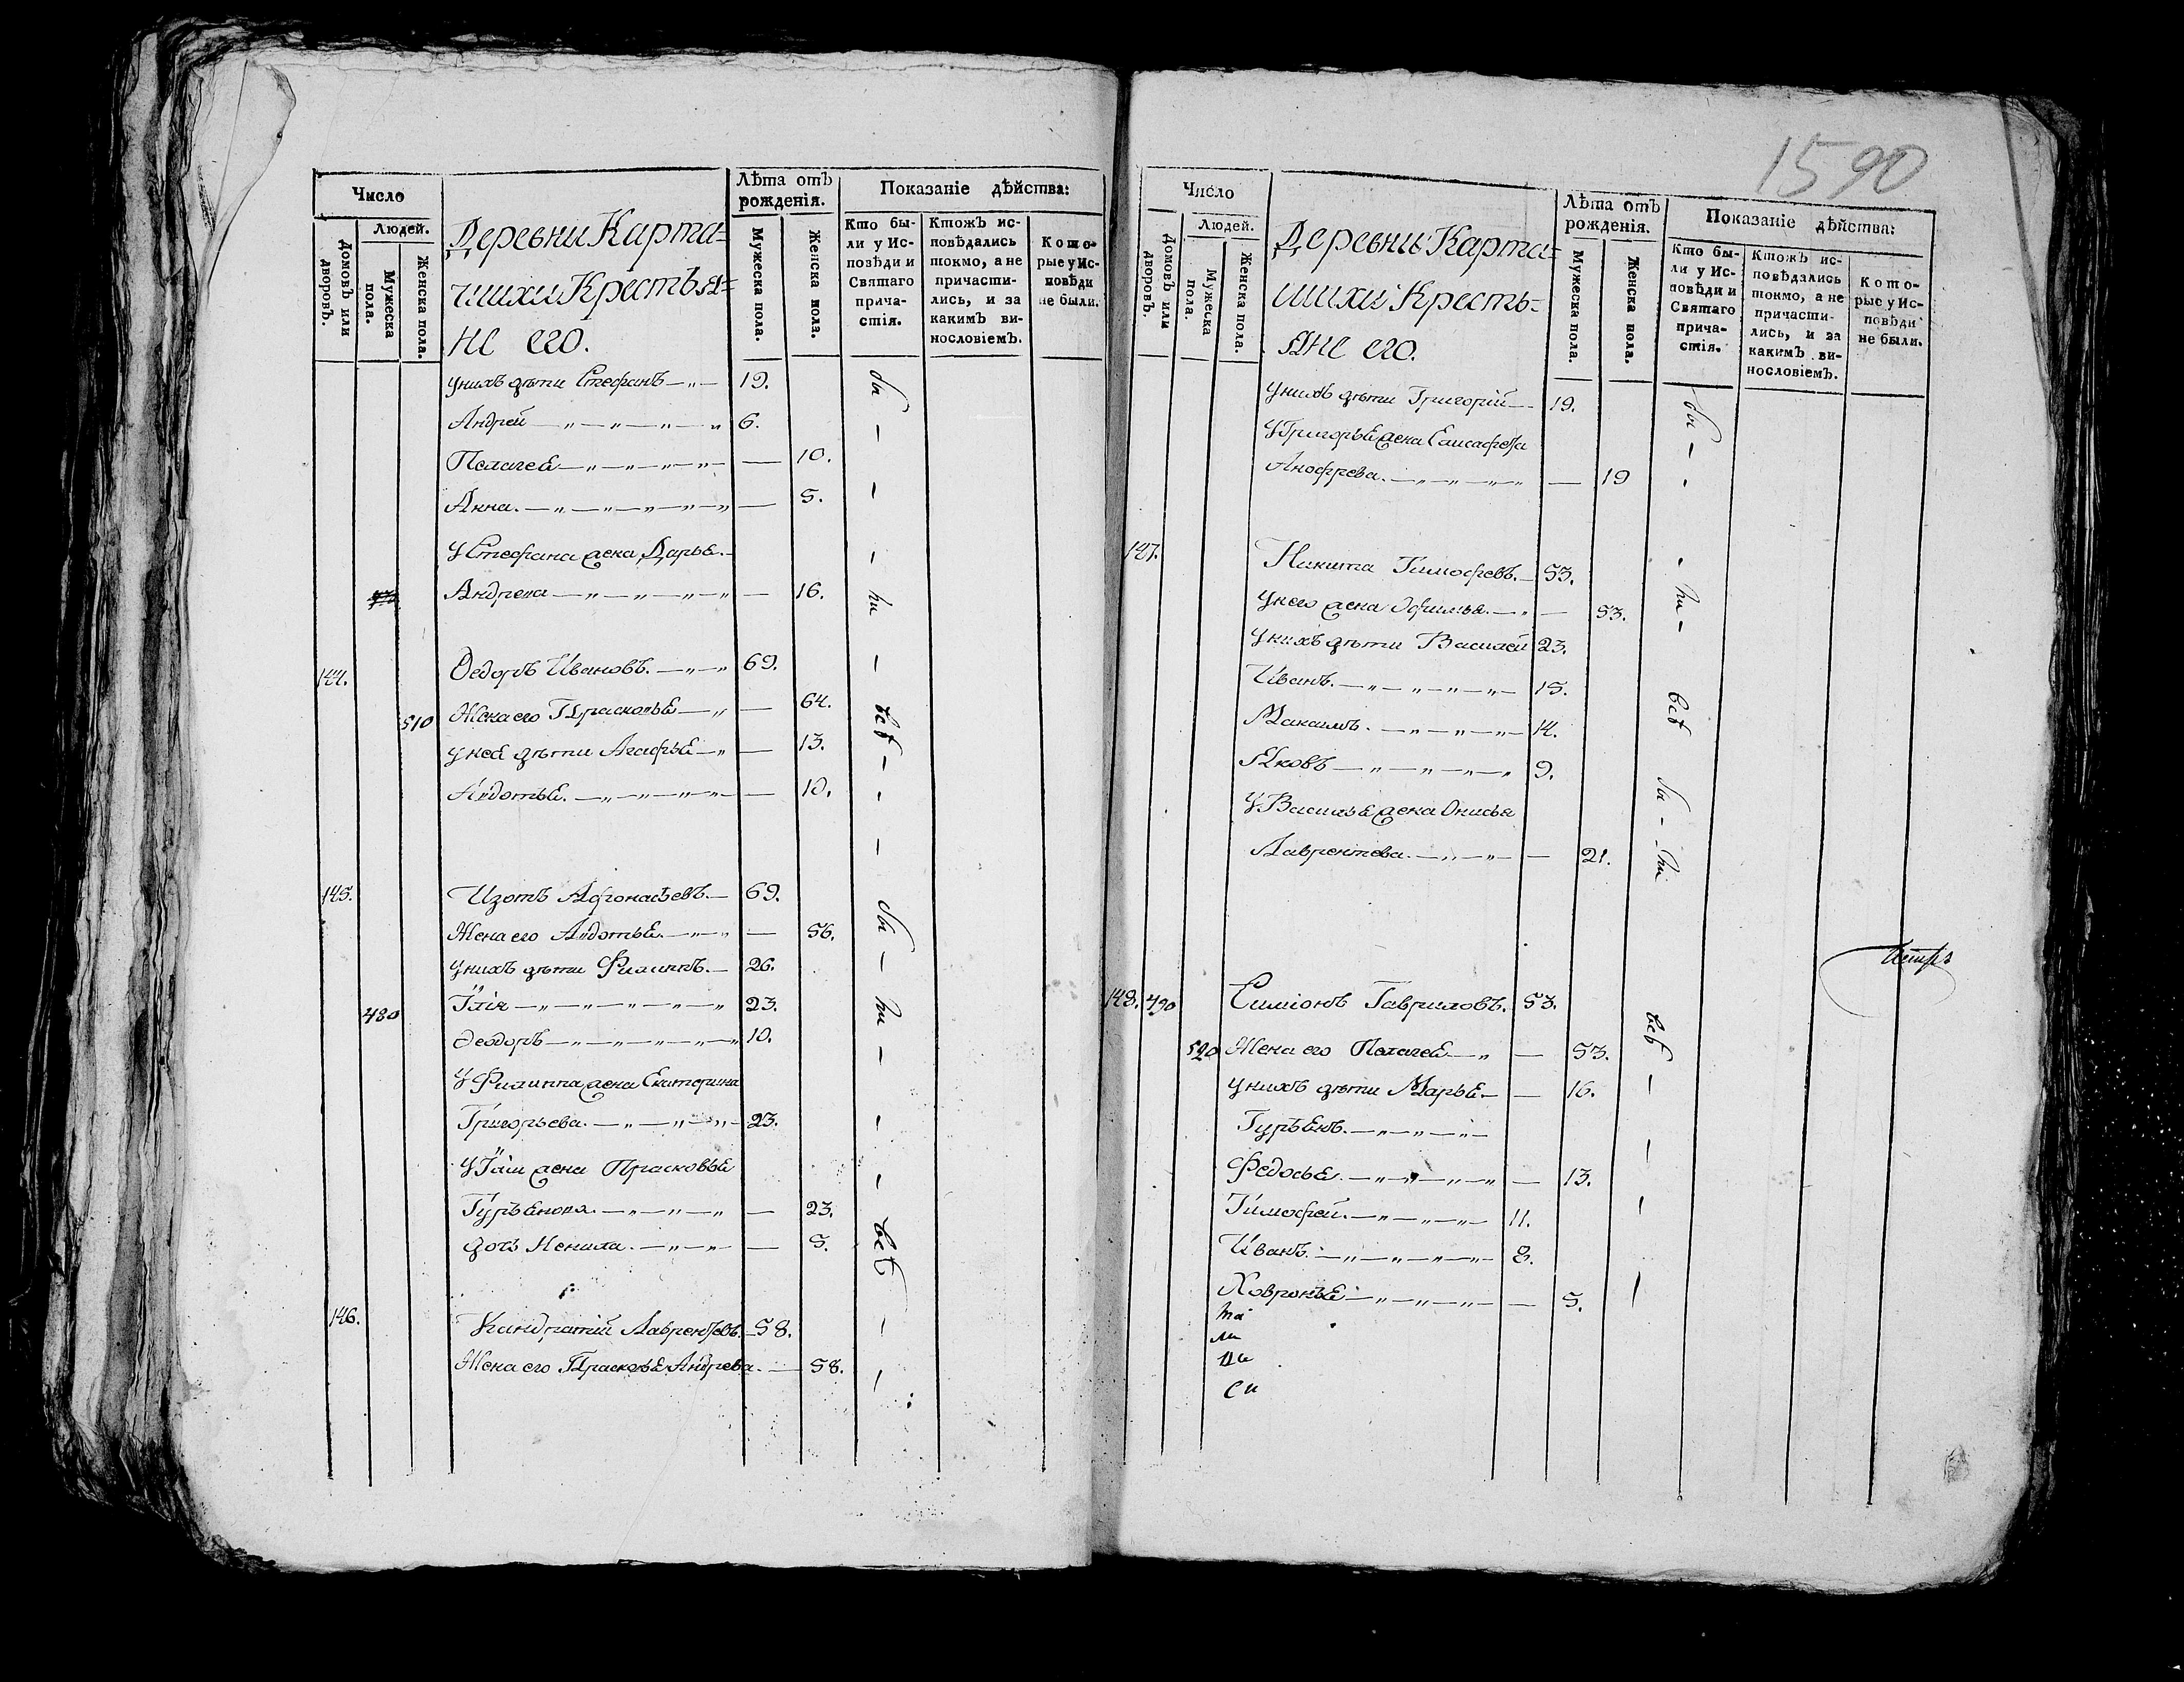 Число
Людей.
Домовъ или дворовъ.
Мужеска пола.
Женска пола.
Деревни Карта=
шихи Крестья=
не его.
Лѣта отъ рожденія.
Мужеска пола.
Женска пола.
Показаніе дѣйства:
Кто бы-
ли у Ис-
повѣди и
Святаго
прича-
стія.
Ктожъ ис-
повѣдались
токмо, а не
причасти-
лись, и за
какимъ ви-
нословіемъ.
Кото-
рые у Ис-
повѣди
не были.
у нихъ дѣти Стефанъ 19. бы
Андрей 6.
Пелагея 10.
Анна. 5.
У Стефана жена Дарья.
Андрева 16. ли
144. Ѳедоръ Ивановъ. 69.
510 Жена его Прасковья 64. всѣ
у нея дѣти Агафья 13.
Авдотья. 10.
145. Изотъ Афонасьевъ. 69. бы
Жена его Авдотья. 56.
у нихъ дѣти Филиппъ. 26.
480 Илія 23. ли
Ѳеодоръ 10.
У Филиппа жена Екатерина
Григорьева. 23.
У Иліи жена Прасковья
Гурьянова. 23. всѣ
дочь Ненила. 5.
146. Кандратій Лаврентьевъ. 58.
Жена его Прасковья Андрева. 58.
1590
Число
Людей.
Домовъ или дворовъ.
Мужеска пола.
Женска пола.
Деревни Карта=
шихи Кресть=
яне его.
Лѣта отъ рожденія.
Мужеска пола.
Женска пола.
Показаніе дѣйства:
Кто бы-
ли у Ис-
повѣди и
Святаго
прича-
стія.
Ктожъ ис-
повѣдались
токмо, а не
причасти-
лись, и за
какимъ ви-
нословіемъ.
Кото-
рые у Ис-
повѣди
не были.
у нихъ дѣти Григорій 19. бы
У Григорья жена Елисафета
Анофрева. 19
147. Никита Тимофевъ. 53.
у него жена Офимья. 53. ли
у нихъ дѣти Василей 23.
Иванъ. 15. всѣ
Максимъ. 14.
Яковъ 9. бы
У Василья жена Онисья
Лаврентева. 21. ли
148. 490 Симіонъ Гавриловъ. 53. всѣ
520 Жена его Пелагея 53.
у нихъ дѣти Марья 16.
Гурьянъ.
Федосья. 13.
Тимофей. 11.
Иванъ. 8.
Ховронья 5.